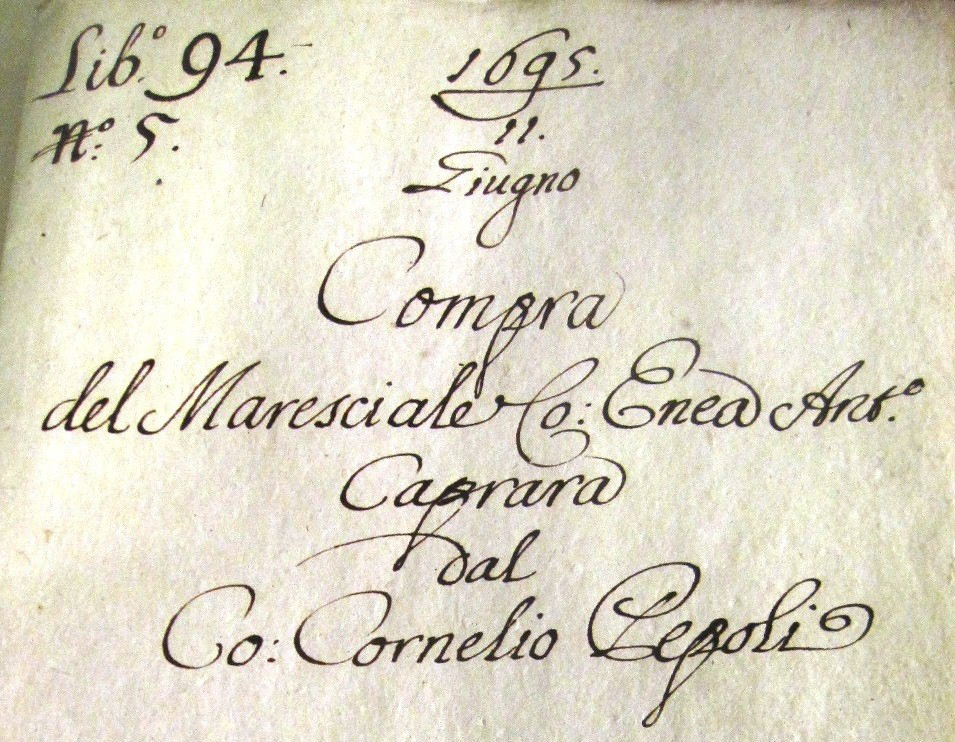 Lib.º 94.
N.º 5.
1695.
11.
Giugno
Compra
del Maresciale Co: Enea Ant.º
Caprara
dal
Co: Cornelio Pepoli